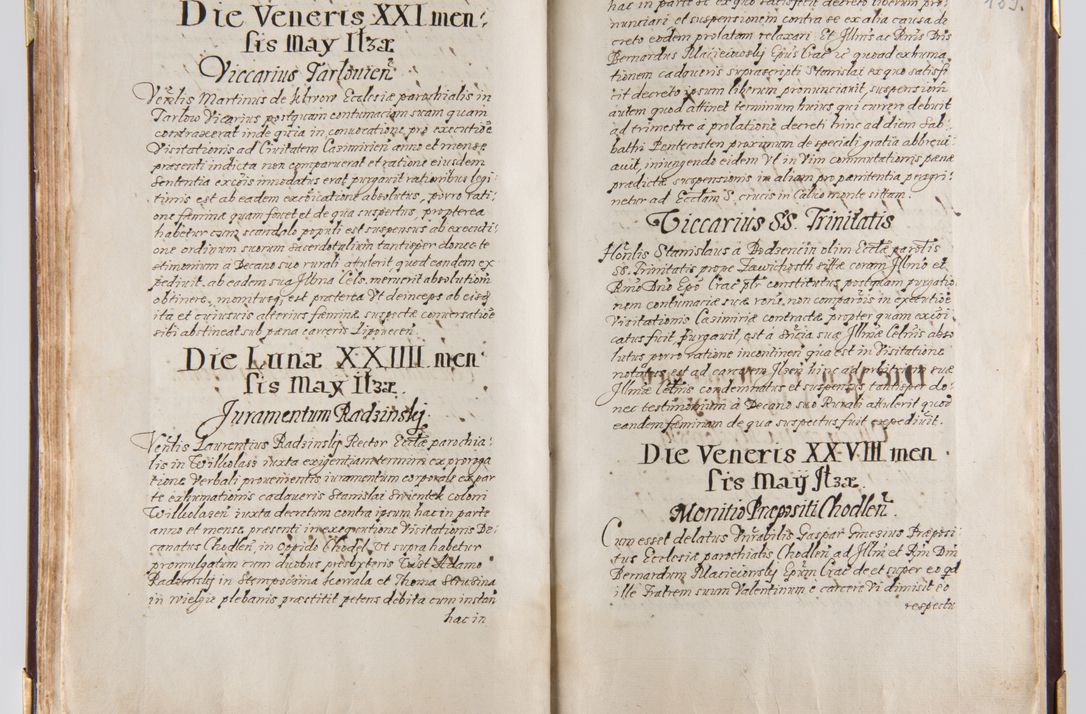 Die Veneris XXI men:
sis May Ilzæ
Viccarius Tarlovien̄
Ven̄lis Martinus de Ecclesiæ parochialis in
Tarlow Vicarius postquam contumaciam suam quam
contraxerat inde in convocatione pro executiōe
Visitationis ad Civitatem Casimirien̄ anno et mense
præsenti indicta non comparuerat et ratione eiusdem
sententia excōis innodatus erat purgavit rationibus legi
timis est ab eadem excōicatione absolutus, porro rati:
one fæmina quam fovet et de qua suspectus, propterea
habetur cum scandalo populi est suspensus ab executi:
one ordinum suorum sacerdotalium tantisper donec te
stimonium a Decano suo rurali attulerit quod eandem ex
pedivit. ab eadem sua Illma Cels. meruerit absolution̄
obtinere, monitusq; est præterea Vt deinceps ab eisq
ita et cuiuscis alterius fæminæ suspectæ conversatiōe
sibi abstineat sub pæna carceris Lipovecen̄.
Die Lunæ XXIIII men:
sis May Ilzæ
Juramentum Radzinsky
Ven̄lis Laurentius Radzinsky Rector Ecclæ parochia:
lis in Willcolass iuxta exigentiam termini ex proroga
tione Verbali provenientis iuramentum corporale ex par
te exhumationis cadaveris Stanislai Swientek coloni
Willcolassen̄ iuxta decretum contra ipsum hac in parte
anno et mense præsenti in exequutione Visitationis De:
canatus Chodlen̄, in Oppido Chodel, Vt supra habetur
promulgatum cum duobus præsbyteris Adamo
Radzinsky in et Thoma
in Wielgie plebanis præstitit petens debita cum instan̄
hac in
hac in parte se ex quo satisfecit decreto liberum pro:
nunciari et suspensionem contra se ex alia causa de
creto eodem prolatam relaxari. Et Illm̄s ac Rm̄s Dn̄s
Bernardus Macieiowsky Ep̄us Crac̄ &c quoad exhuma
tionem cadaveris suprascripti Stanislai ex quo satisfe
cit decreto ipsum liberum pronunciavit, suspensionis
autem quod attinet terminum huius qui currere debuit
ad trimestre à prolatione decreti hinc ad diem Sab:
bathi Pentecosten proximum de speciali gratia abbrevi:
avit, iniungendo eidem Vt in Vim commutationis pænæ
prædictæ suspensionis in aliam pro pænitentia peregri:
netur ad Ecclam S. crucis in Calvo monte sittam.
Viccarius SS. Trinitatis
Hon̄lis Stanislaus à Bodzencin olim Ecclæ paro͞lis
SS. Trinitatis prope Zawichosth sittæ coram Illmo et
Rmo Dno Epo Crac̄ constitutus postquam purgatio
nem contumaciæ suæ roīne non comparitiōis in executiōe
Visitationis Casimiriæ contractæ propter quam excōi:
catus fuit purgavit, est à sn̄cia suæ Illmæ Celn̄is abso
lutus porro ratione incontinen̄ qua est in Visitatione
notatus est ad carcerem Ilzen̄ hinc ad arbitrium suæ
Illmæ Celn̄is condemnatus et suspensus tantisper do:
nec testimonium à Decano suo Rurali attulerit quod
eandem fæminam de qua suspectus fuit expedivit.
Die Veneris XXVIII men
sis Maÿ Ilzæ
Monitio Præpositi Chodlen̄
Cum esset delatus Vn̄rabilis Gaspar Gnesius Præposi
tus Ecclesiæ parochialis Chodlen̄ ad Illm̄ et Rm̄ Dn̄
Bernardum Macieiowsky Ep̄um Crac̄ de et super eo qd
ille Fratrem suum Valentinum e carcere Vi dimisit eo
respectu